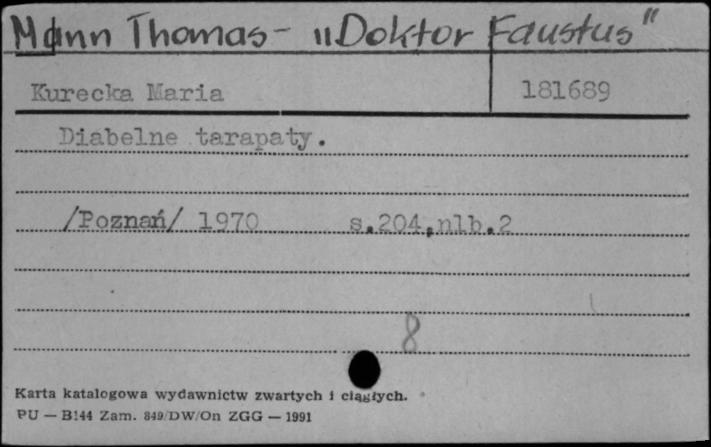 Mann Thomas - „Doktor Faustus"
Kurecka Maria 181689
Diabelne tarapaty.
/Poznań/ 1970 s.204,nlb.2
8
Karta katalogowa wydawnictw zwartych i ciągłych.
PU — B144 Zam. 849/DW/On ZGG — 1991